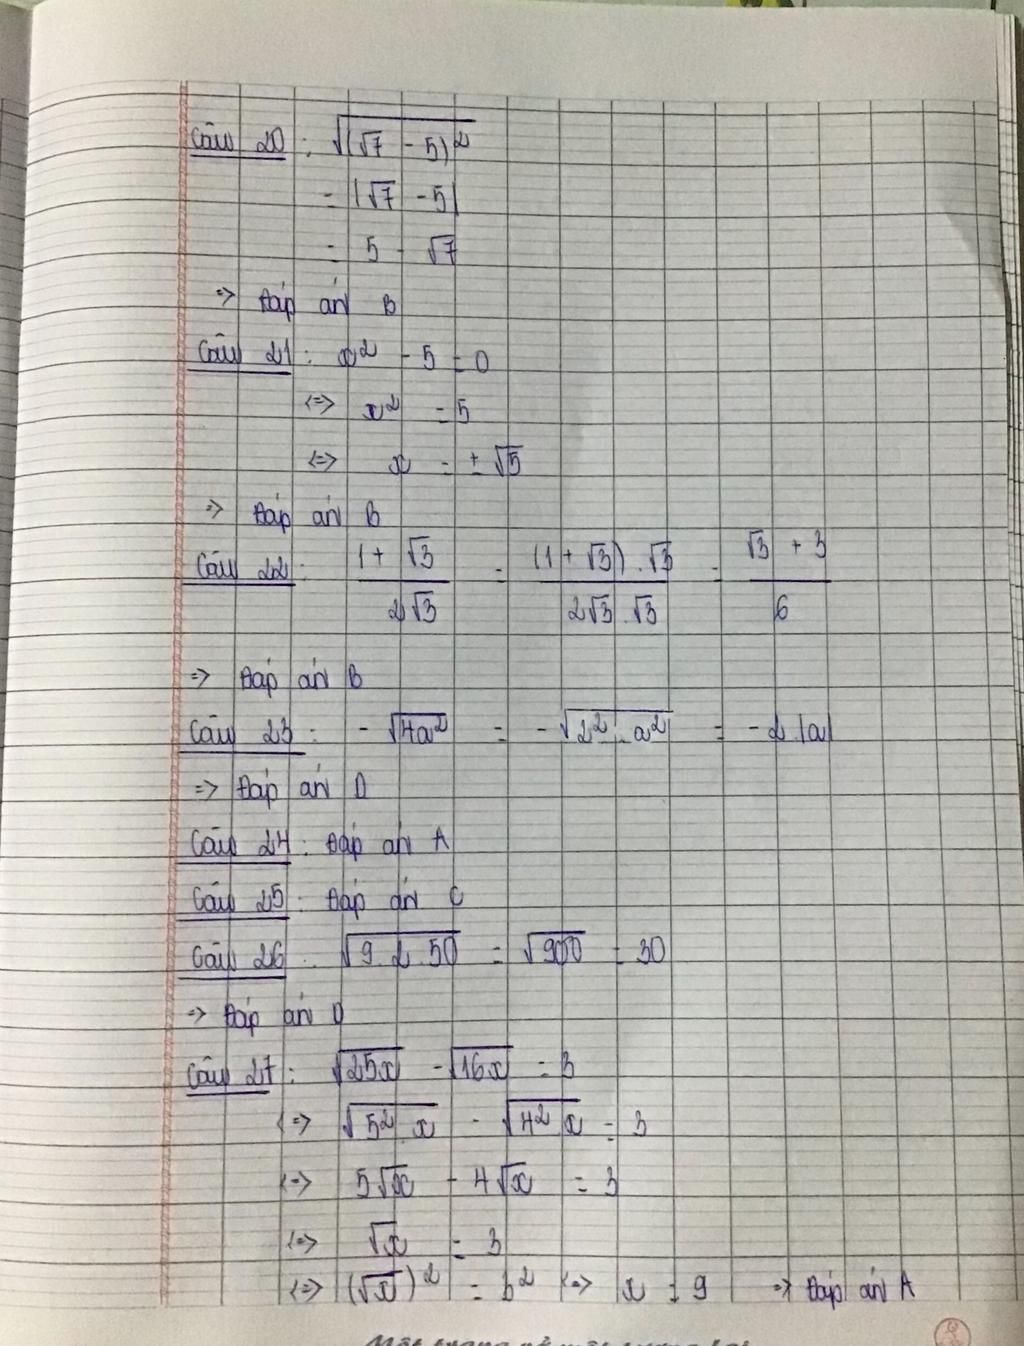 Câu 20 : √(√7 - 5)²
= |√7 - 5|
= 5 - √7
=> Đáp án B
Câu 21 : x² - 5 = 0
<=> x² = 5
<=> x = ±√5
=> Đáp án B
Câu 22 : (1 + √3)/(2√3) = ((1 + √3).√3)/(2√3.√3) = (√3 + 3)/6
=> Đáp án B
Câu 23 : -√4a² = -√2².a² = -2.|a|
=> Đáp án D
Câu 24 : Đáp án A
Câu 25 : Đáp án C
Câu 26 : √9.2.50 = √900 = 30
=> Đáp án D
Câu 27 : √25x - √16x = 3
<=> √5².x - √4².x = 3
<=> 5√x - 4√x = 3
<=> √x = 3
<=> (√x)² = 3² <=> x = 9 => Đáp án A